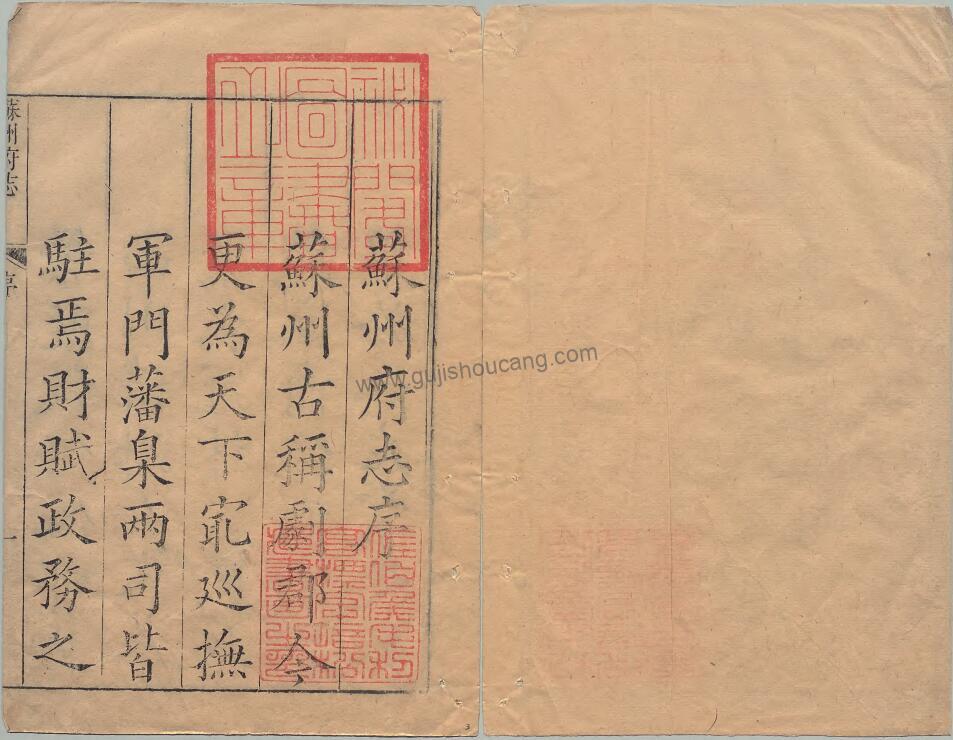 蘇州府志序
蘇州古稱劇郡今
更為天下冣巡撫
軍門藩臬兩司皆
駐焉財賦政務之
蘇州府志
序
一
秘閣圖書之章
www.gujishoucang.com
3